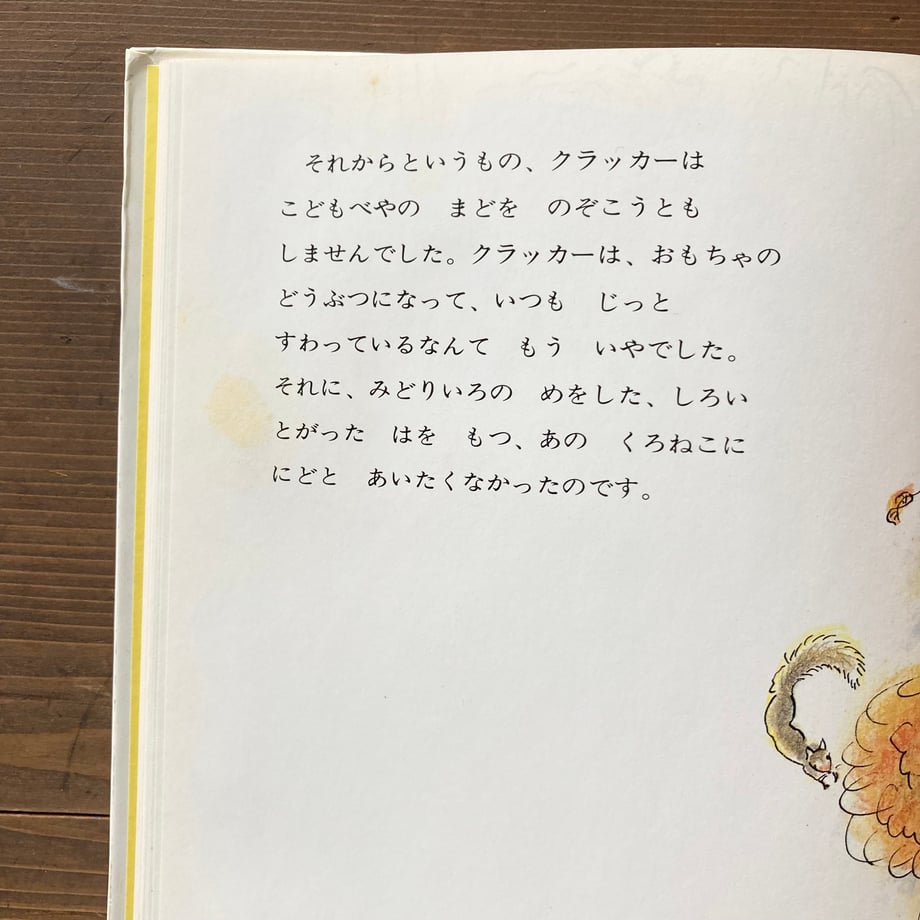 それからというもの、クラッカーは
こどもべやの　まどを　のぞこうとも
しませんでした。クラッカーは、おもちゃの
どうぶつになって、いつも　じっと
すわっているなんて　もう　いやでした。
それに、みどりいろの　めをした、しろい
とがった　はを　もつ、あの　くろねこに
にどと　あいたくなかったのです。